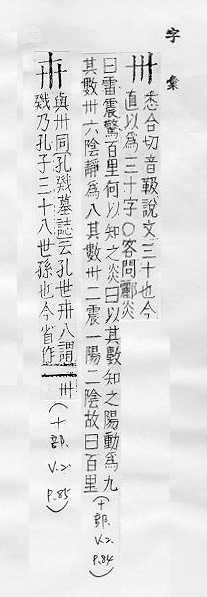 字彙
卅 悉合切音靸說文三十也今
直以為三十字○客問酈炎
曰雷震驚百里何以知之炎曰以其數知之陽動為九
其數卅六陰靜為八其數卅二震一陽二陰故曰百里(十部. V.2. P.84)
與卅同孔戣墓誌云孔世卅八謂
戣乃孔子三十八世孫也今省作卅(十部. V.2. P.85)